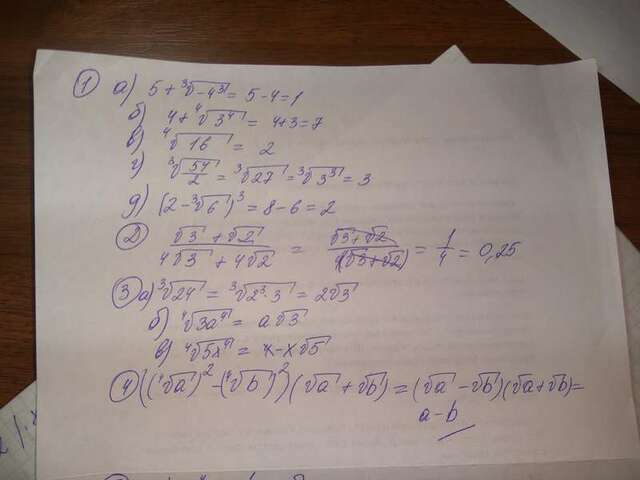 ① а) 5 + ³√-4³ = 5-4=1
б) 4 + ⁴√3⁴ = 4+3=7
в) ⁴√16 = 2
г) ³√54/2 = ³√27 = ³√3³ = 3
д) (2-³√6)³ = 8-6=2
② √3+√2 / 4√3+4√2 = √3+√2 / 4(√3+√2) = 1/4 = 0,25
③ а) ³√24 = ³√2³·3 = 2√3
б) ⁴√3a⁴ = a√3
в) ⁴√5x⁴ = x-x√5
④ ((⁴√a)² - (⁴√b)²)(√a + √b) = (√a - √b)(√a+√b) =
a-b